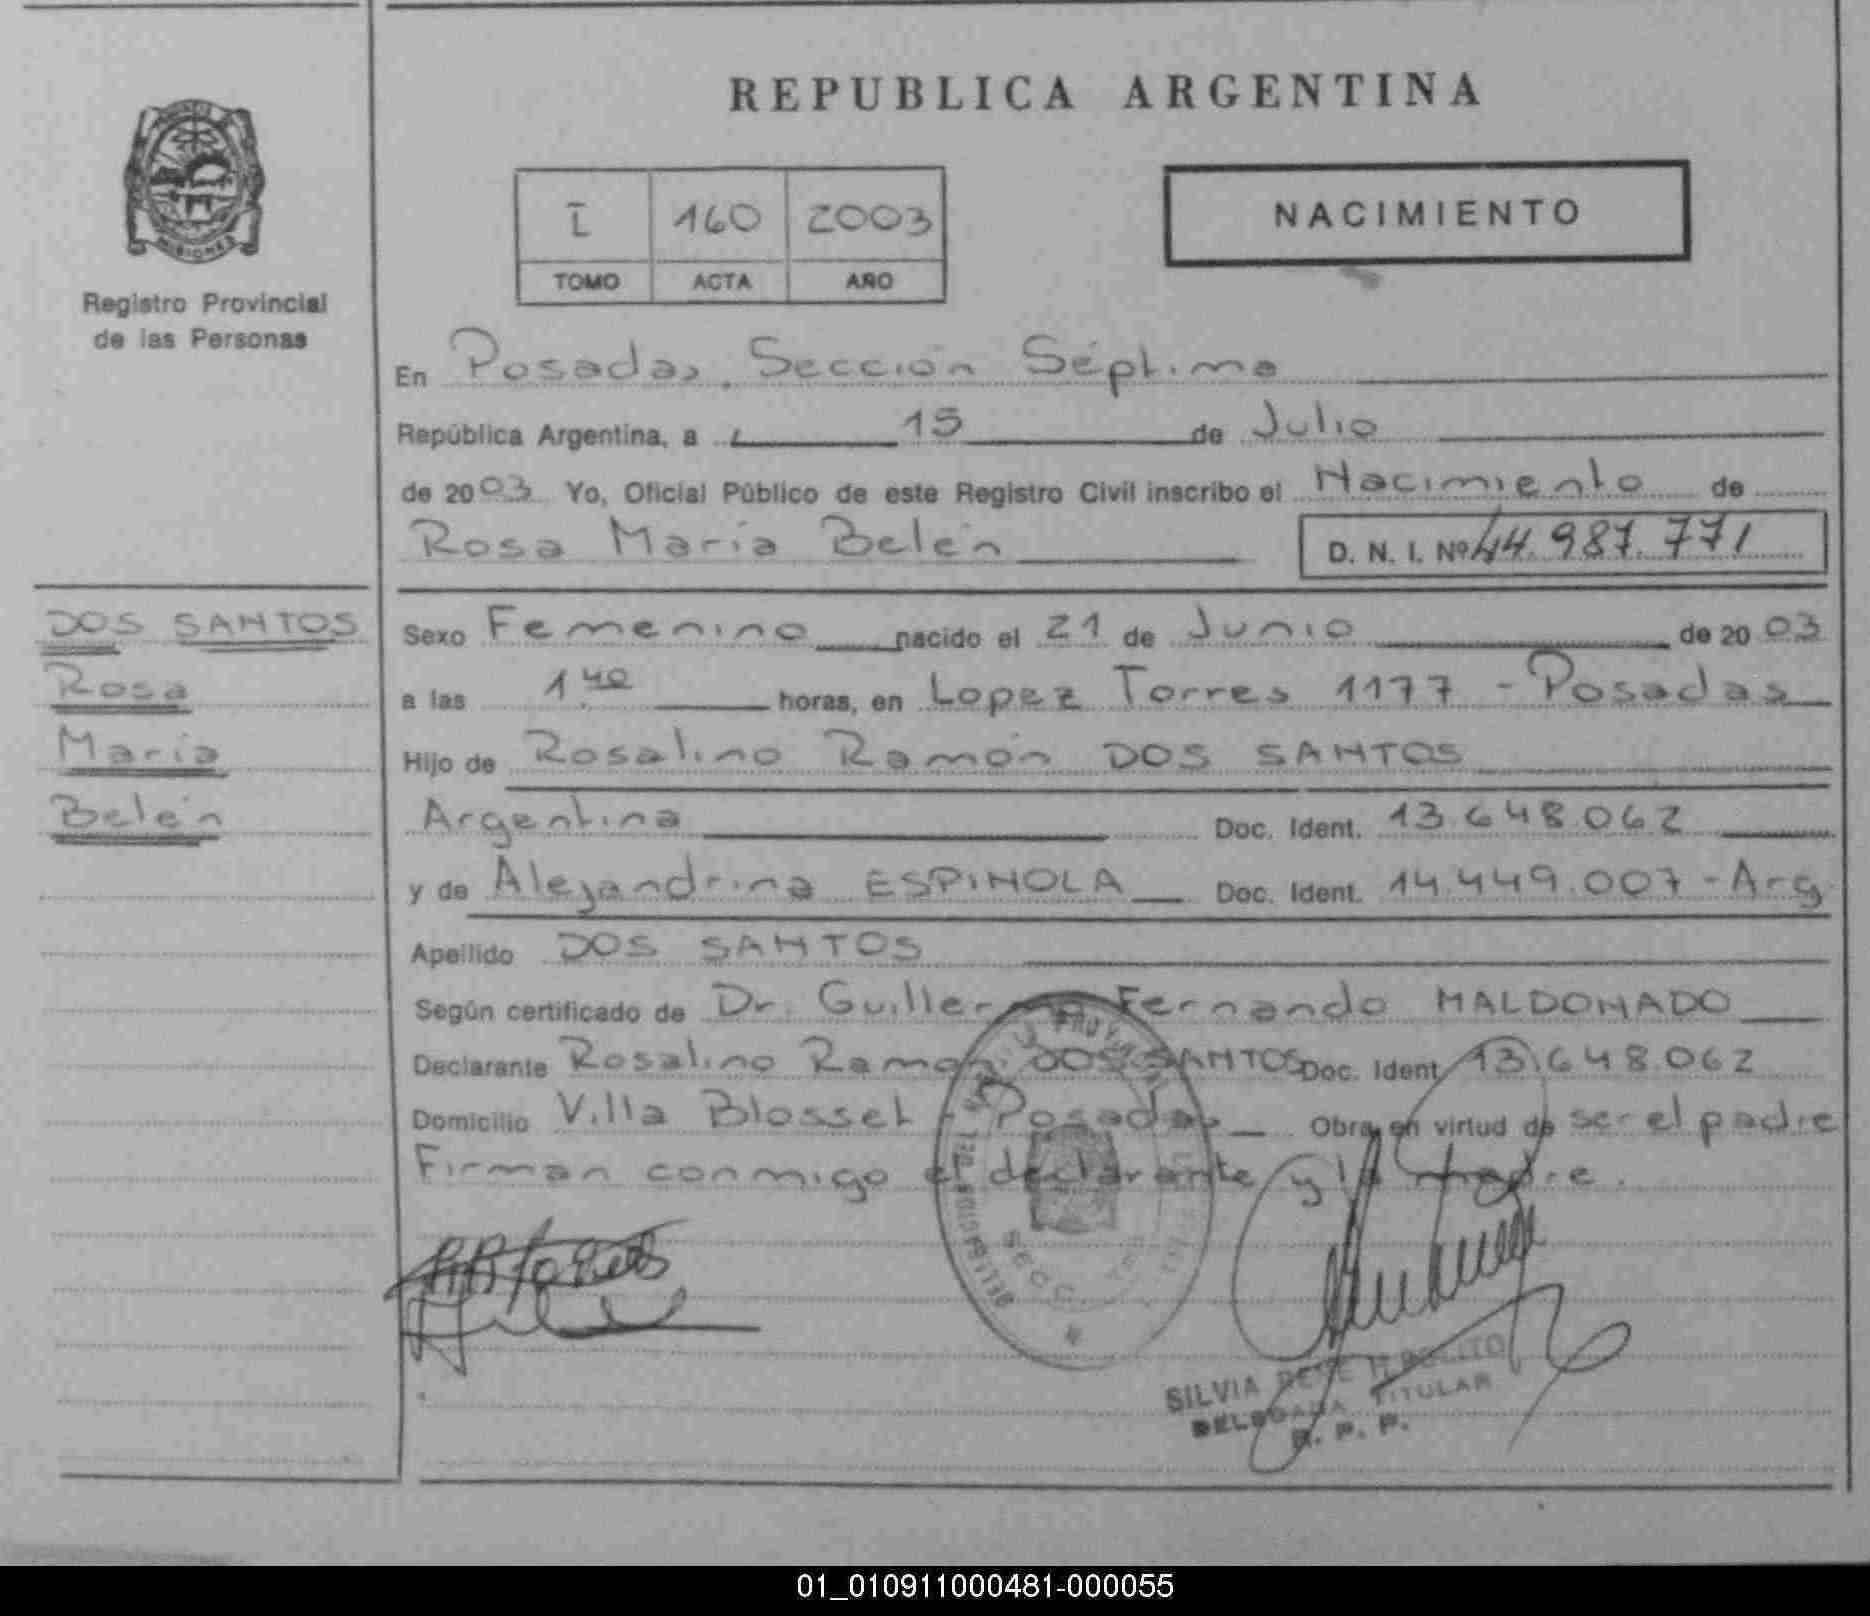 REPUBLICA ARGENTINA
MISIONES
Registro Provincial
de las Personas
I 160 2003
TOMO ACTA AÑO
NACIMIENTO
En Posadas, Sección Séptima
República Argentina, a 15 de Julio
de 2003 Yo, Oficial Público de este Registro Civil inscribo el Nacimiento de
Rosa María Belén D. N. I. Nº 44.987.771
DOS SANTOS
Rosa
María
Belén
Sexo Femenino nacido el 21 de Junio de 2003
a las 1 40 horas, en Lopez Torres 1177 - Posadas
Hijo de Rosalino Ramón DOS SANTOS
Argentina Doc. Ident. 13.648.062
y de Alejandrina ESPINOLA Doc. Ident. 14.449.007 - Arg
Apellido DOS SANTOS
Según certificado de Dr. Guillermo Fernando MALDONADO
Declarante Rosalino Ramón DOS SANTOS Doc. Ident 13.648.062
Domicilio Villa Blosset - Posadas Obra en virtud de ser el padre
Firman conmigo el declarante y la madre.
SILVIA
DELEGADA TITULAR
R. P. P.
01_010911000481-000055